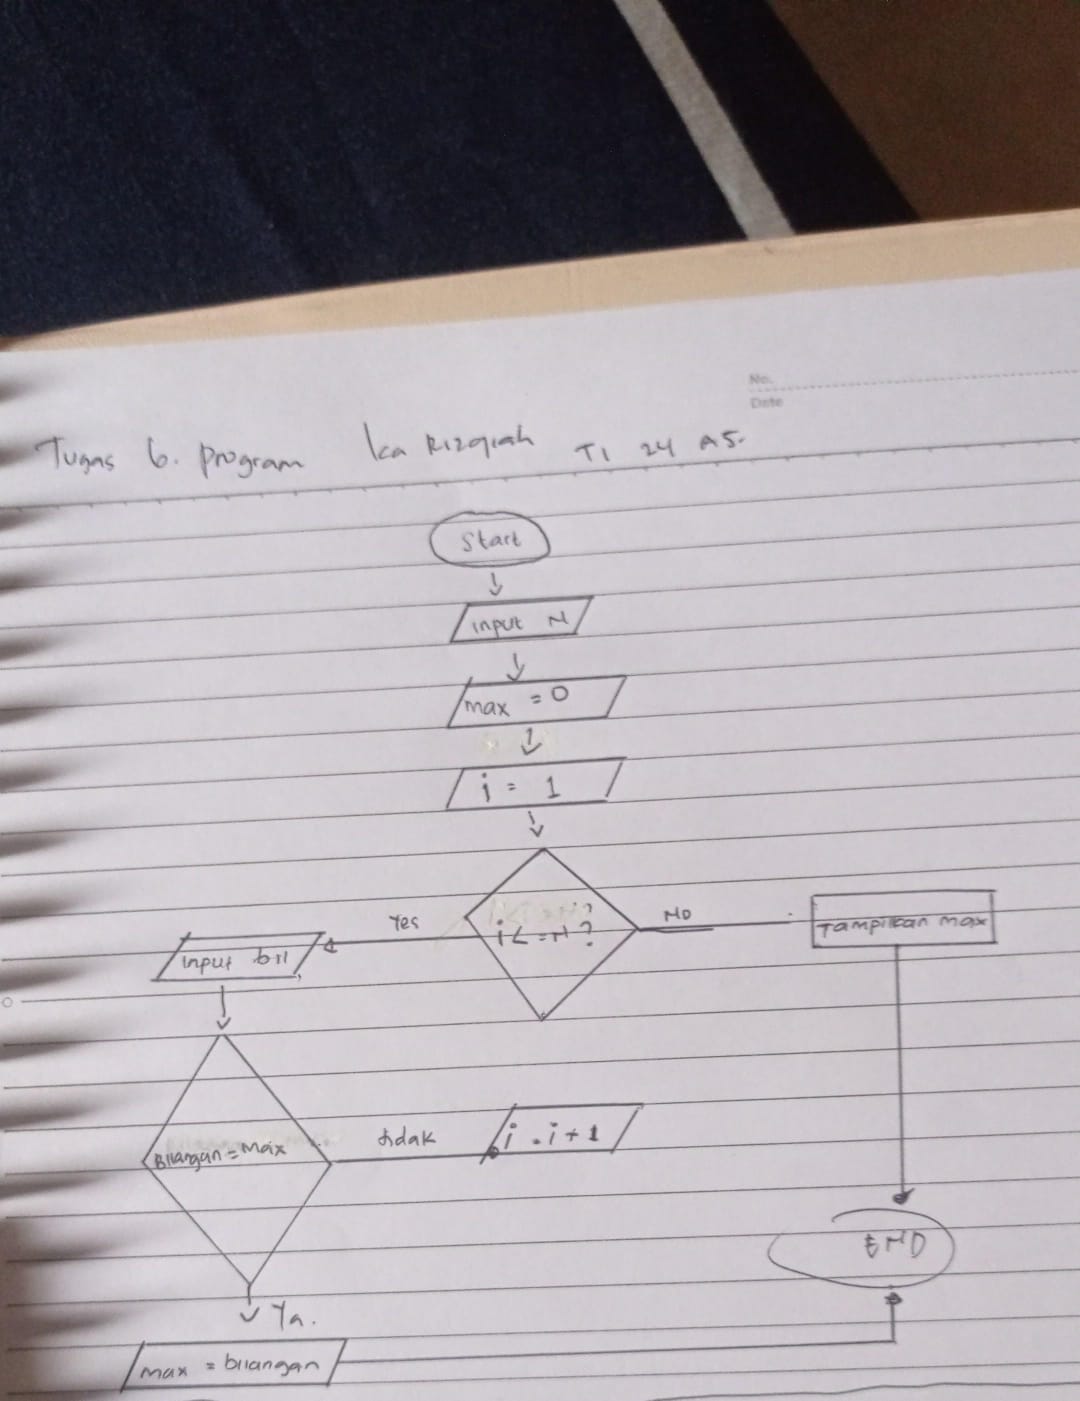 No.
Date
Tugas 6. program Ica Rizqiah TI 24 A5.
Start
input N
max = 0
i = 1
i <= N ?
Yes
NO
Tampilkan max
input bil
Bilangan = max
tidak
i = i + 1
END
Ya.
max = bilangan